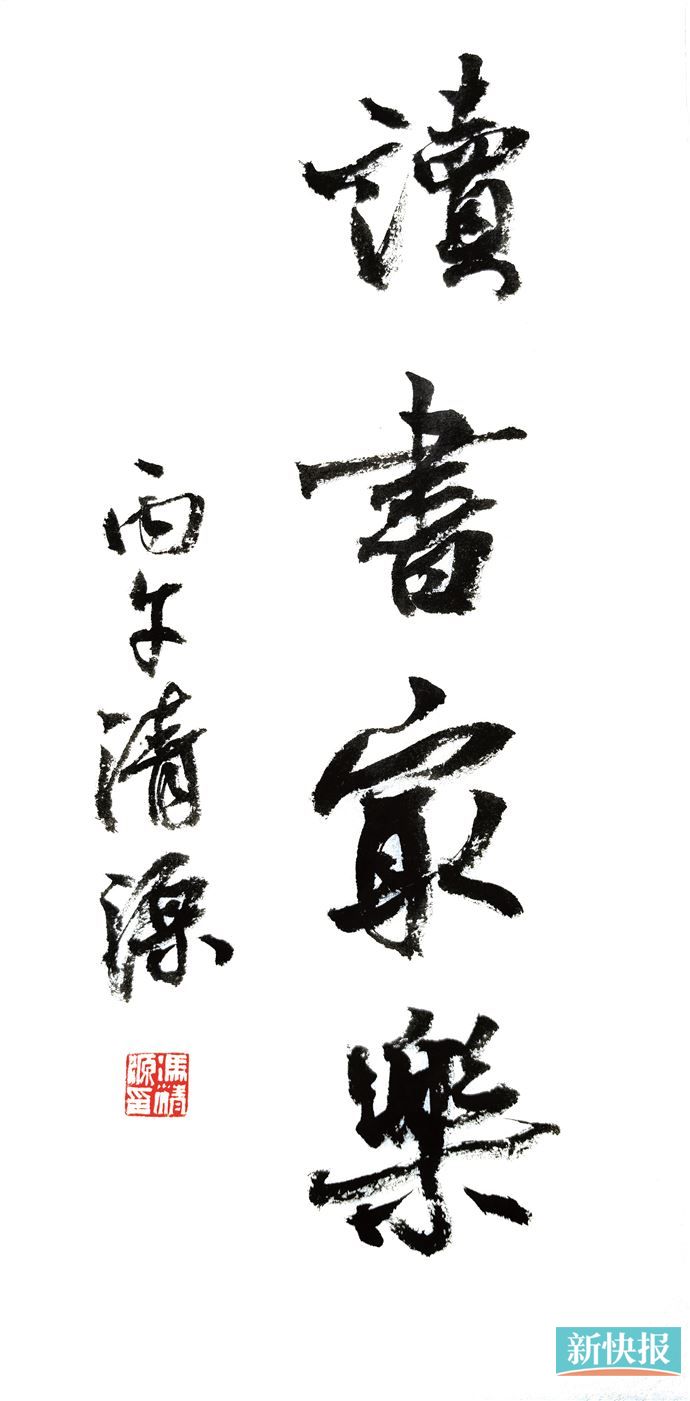 讀書㝡樂
丙午清源
馮清源印
新快报